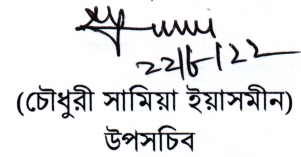 22/6/22
(চৌধুরী সামিয়া ইয়াসমীন)
উপসচিব